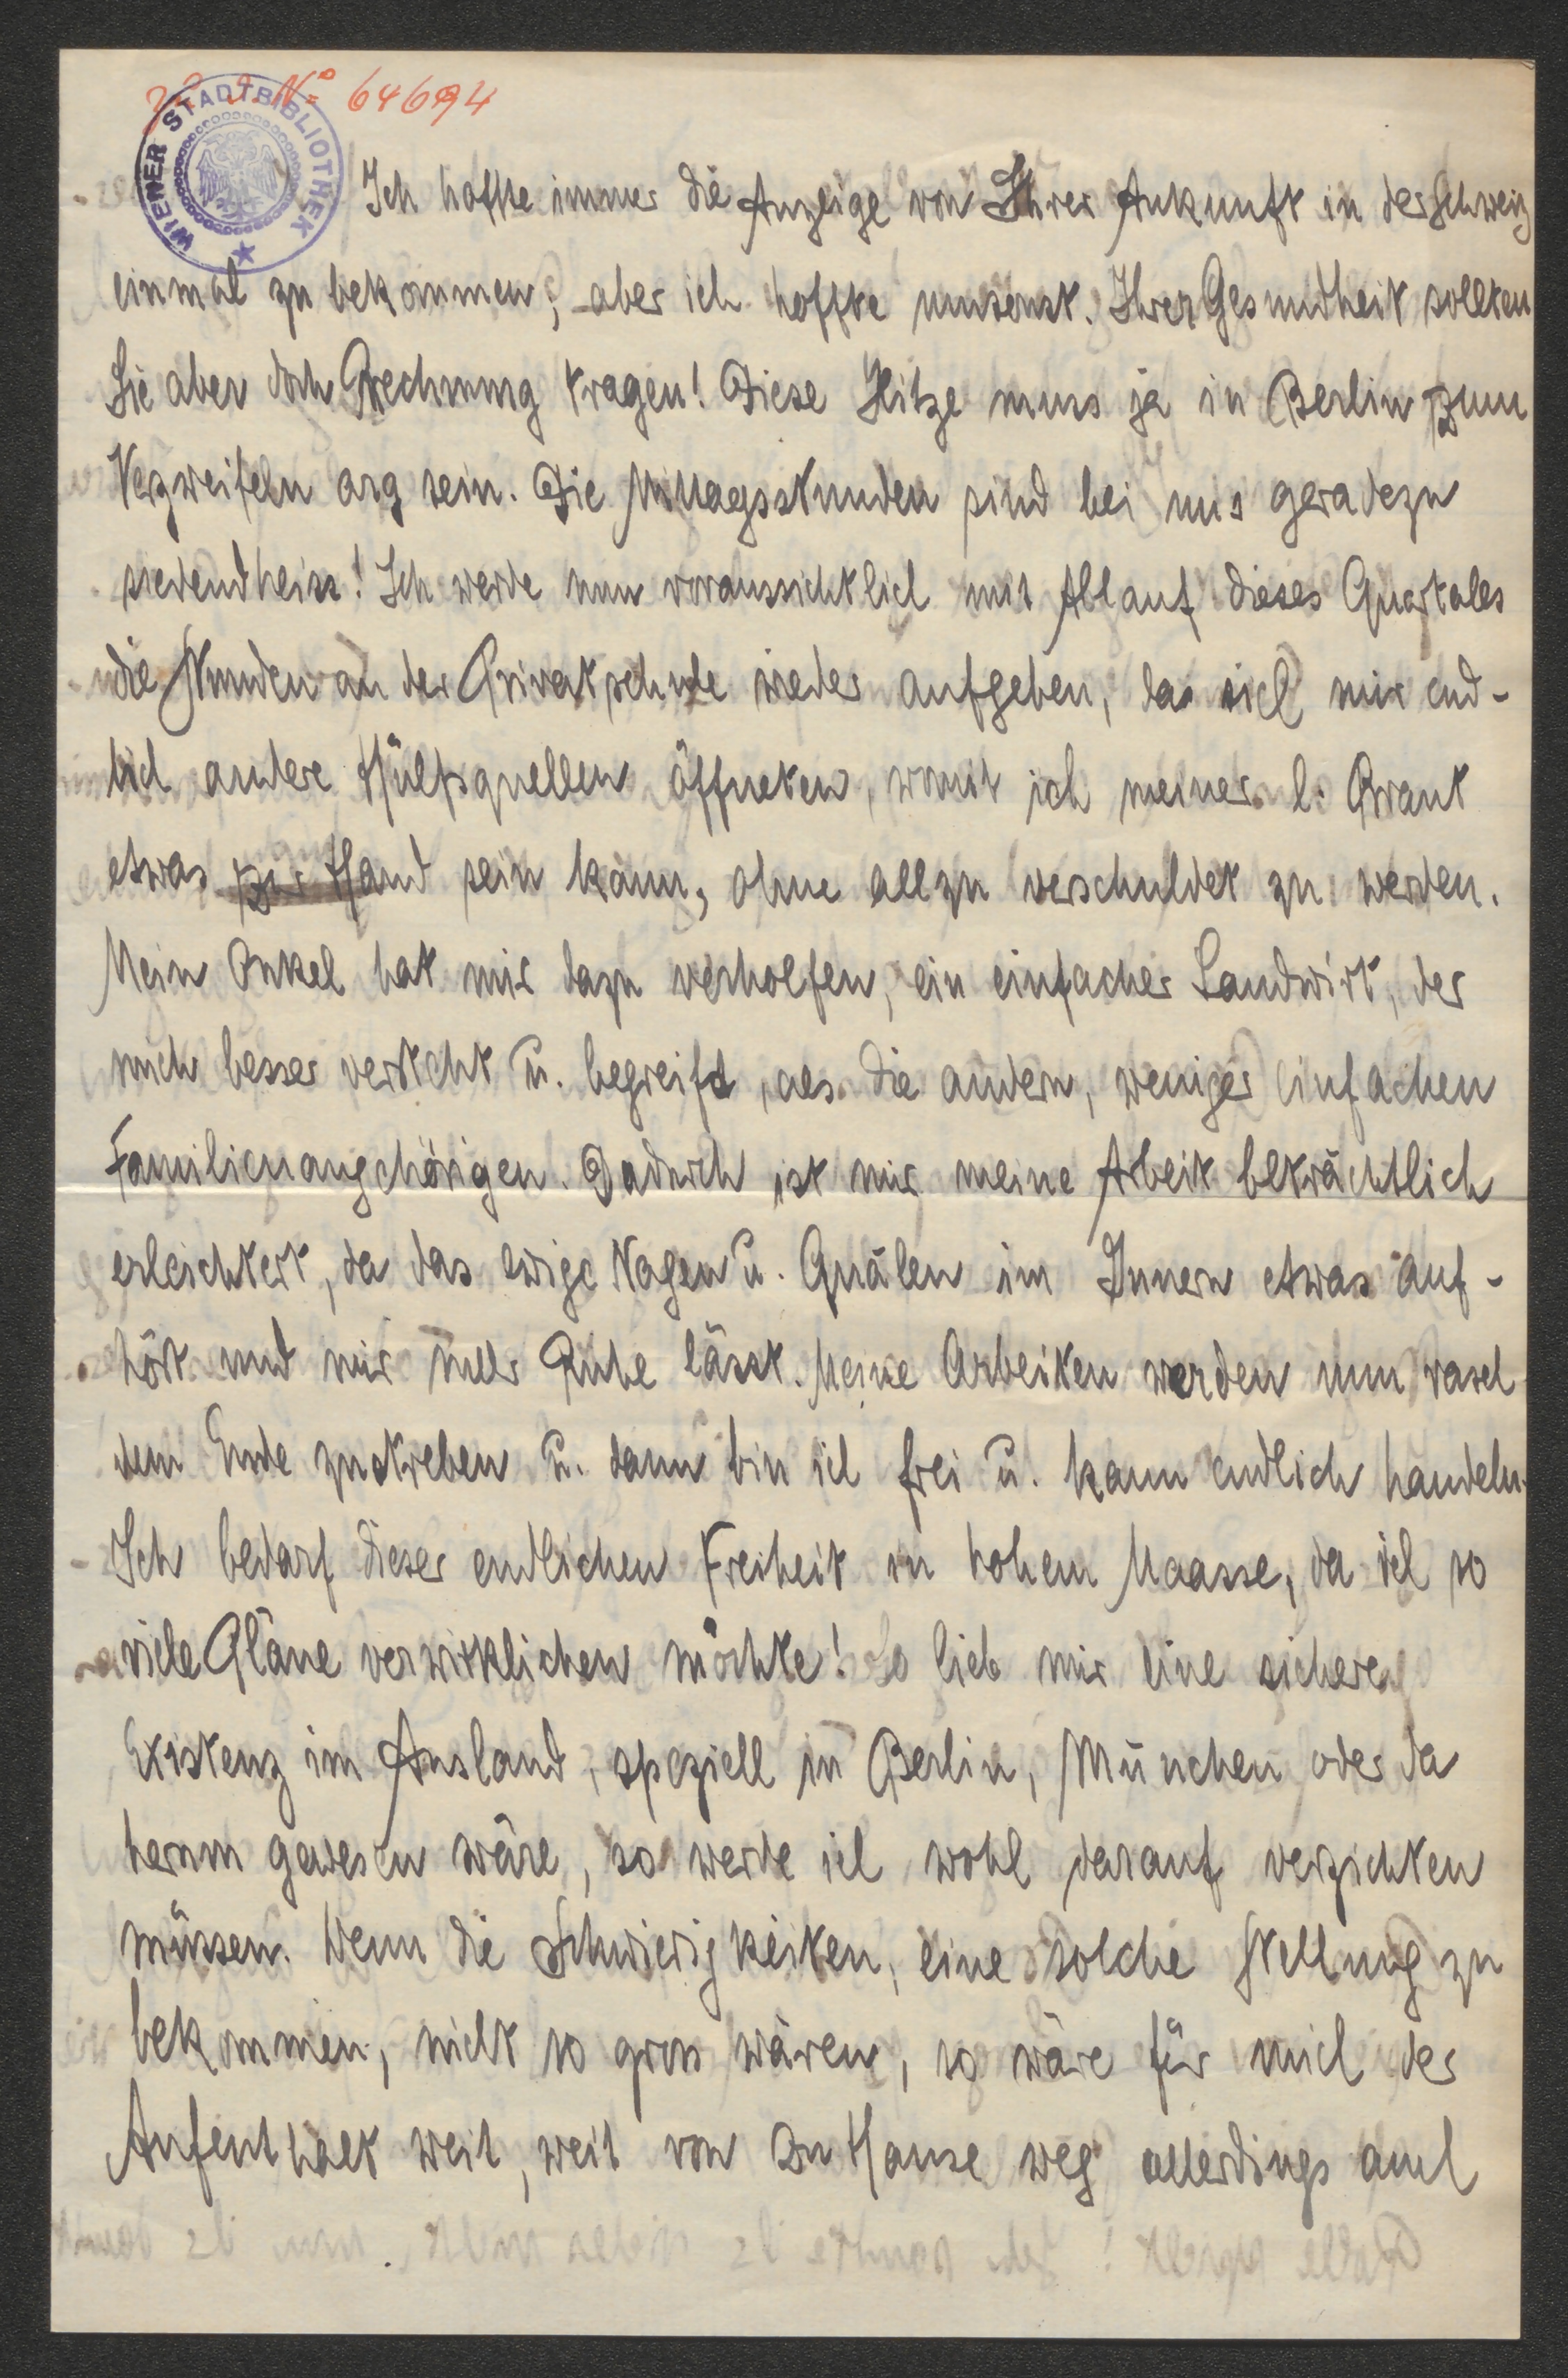 No 64694
WIENER STADTBIBLIOTHEK
Ich hoffte immer die Anzeige von Ihrer Ankunft in der Schweiz
einmal zu bekommen; aber ich hoffte umsonst. Ihrer Gesundheit sollten
Sie aber doch Rechnung tragen! Diese Hitze muss ja in Berlin zum
Verzweifeln arg sein. Die Mittagsstunden sind bei uns geradezu
siedendheiss! Ich werde nun voraussichtlich mit Ablauf dieses Quartales
die Stunden an der Privatschule wieder aufgeben, da sich mir end-
lich andere Hülfsquellen öffneten, womit ich meiner l. Braut
etwas zur Hand sein kann, ohne allzu verschuldet zu werden.
Mein Onkel hat mir dazu verholfen, ein einfacher Landwirt, der
mich besser versteht u. begreift, als die andern, weniger einfachen
Familienangehörigen. Dadurch ist mir meine Arbeit beträchtlich
erleichtert, da das ewige Nagen u. Quälen im Innern etwas auf-
hört und mir mehr Ruhe lässt. Meine Arbeiten werden nun rasch
dem Ende zustreben u. dann bin ich frei u. kann endlich handeln.
Ich bedarf dieser endlichen Freiheit in hohem Maasse, da ich so
viele Pläne verwirklichen möchte! So lieb mir eine sichere
Existenz im Ausland, speziell in Berlin, München oder da
herum gewesen wäre, so werde ich wohl darauf verzichten
müssen. Wenn die Schwierigkeiten, eine solche Stellung zu
bekommen, nicht so gross wären, so wäre für mich der
Aufenthalt weit, weit von zu Hause weg allerdings auch